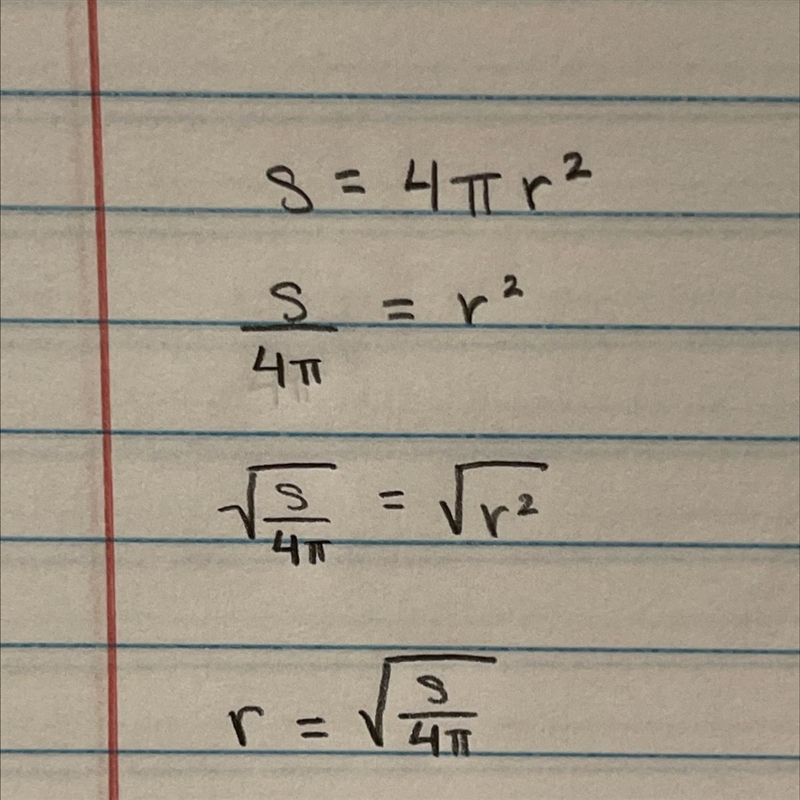 S = 4π r²
S/4π = r²
√(S/4π) = √(r²)
r = √(S/4π)